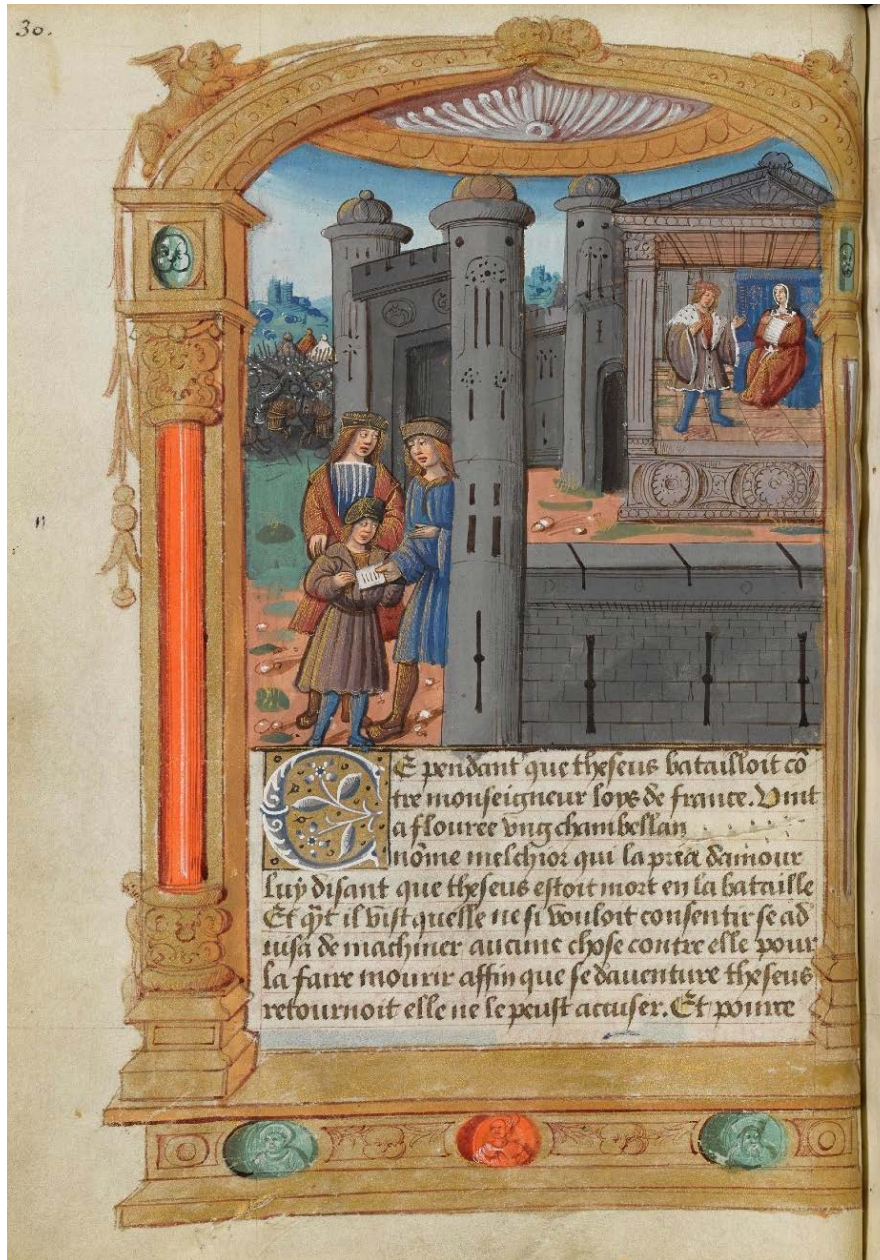 30.
CE pendant que theseus batailloit cō
tre monseigneur loys de france. Vint
a flouree vng chambellan
nōme melchior qui la pria damour
luy disant que theseus estoit mort en la bataille
Et q̄t il vist quelle ne si vouloit consentir se ad
uisa de machiner aucune chose contre elle pour
la faire mourir affin que se dauenture theseus
retournoit elle ne le peust accuser. Et pource